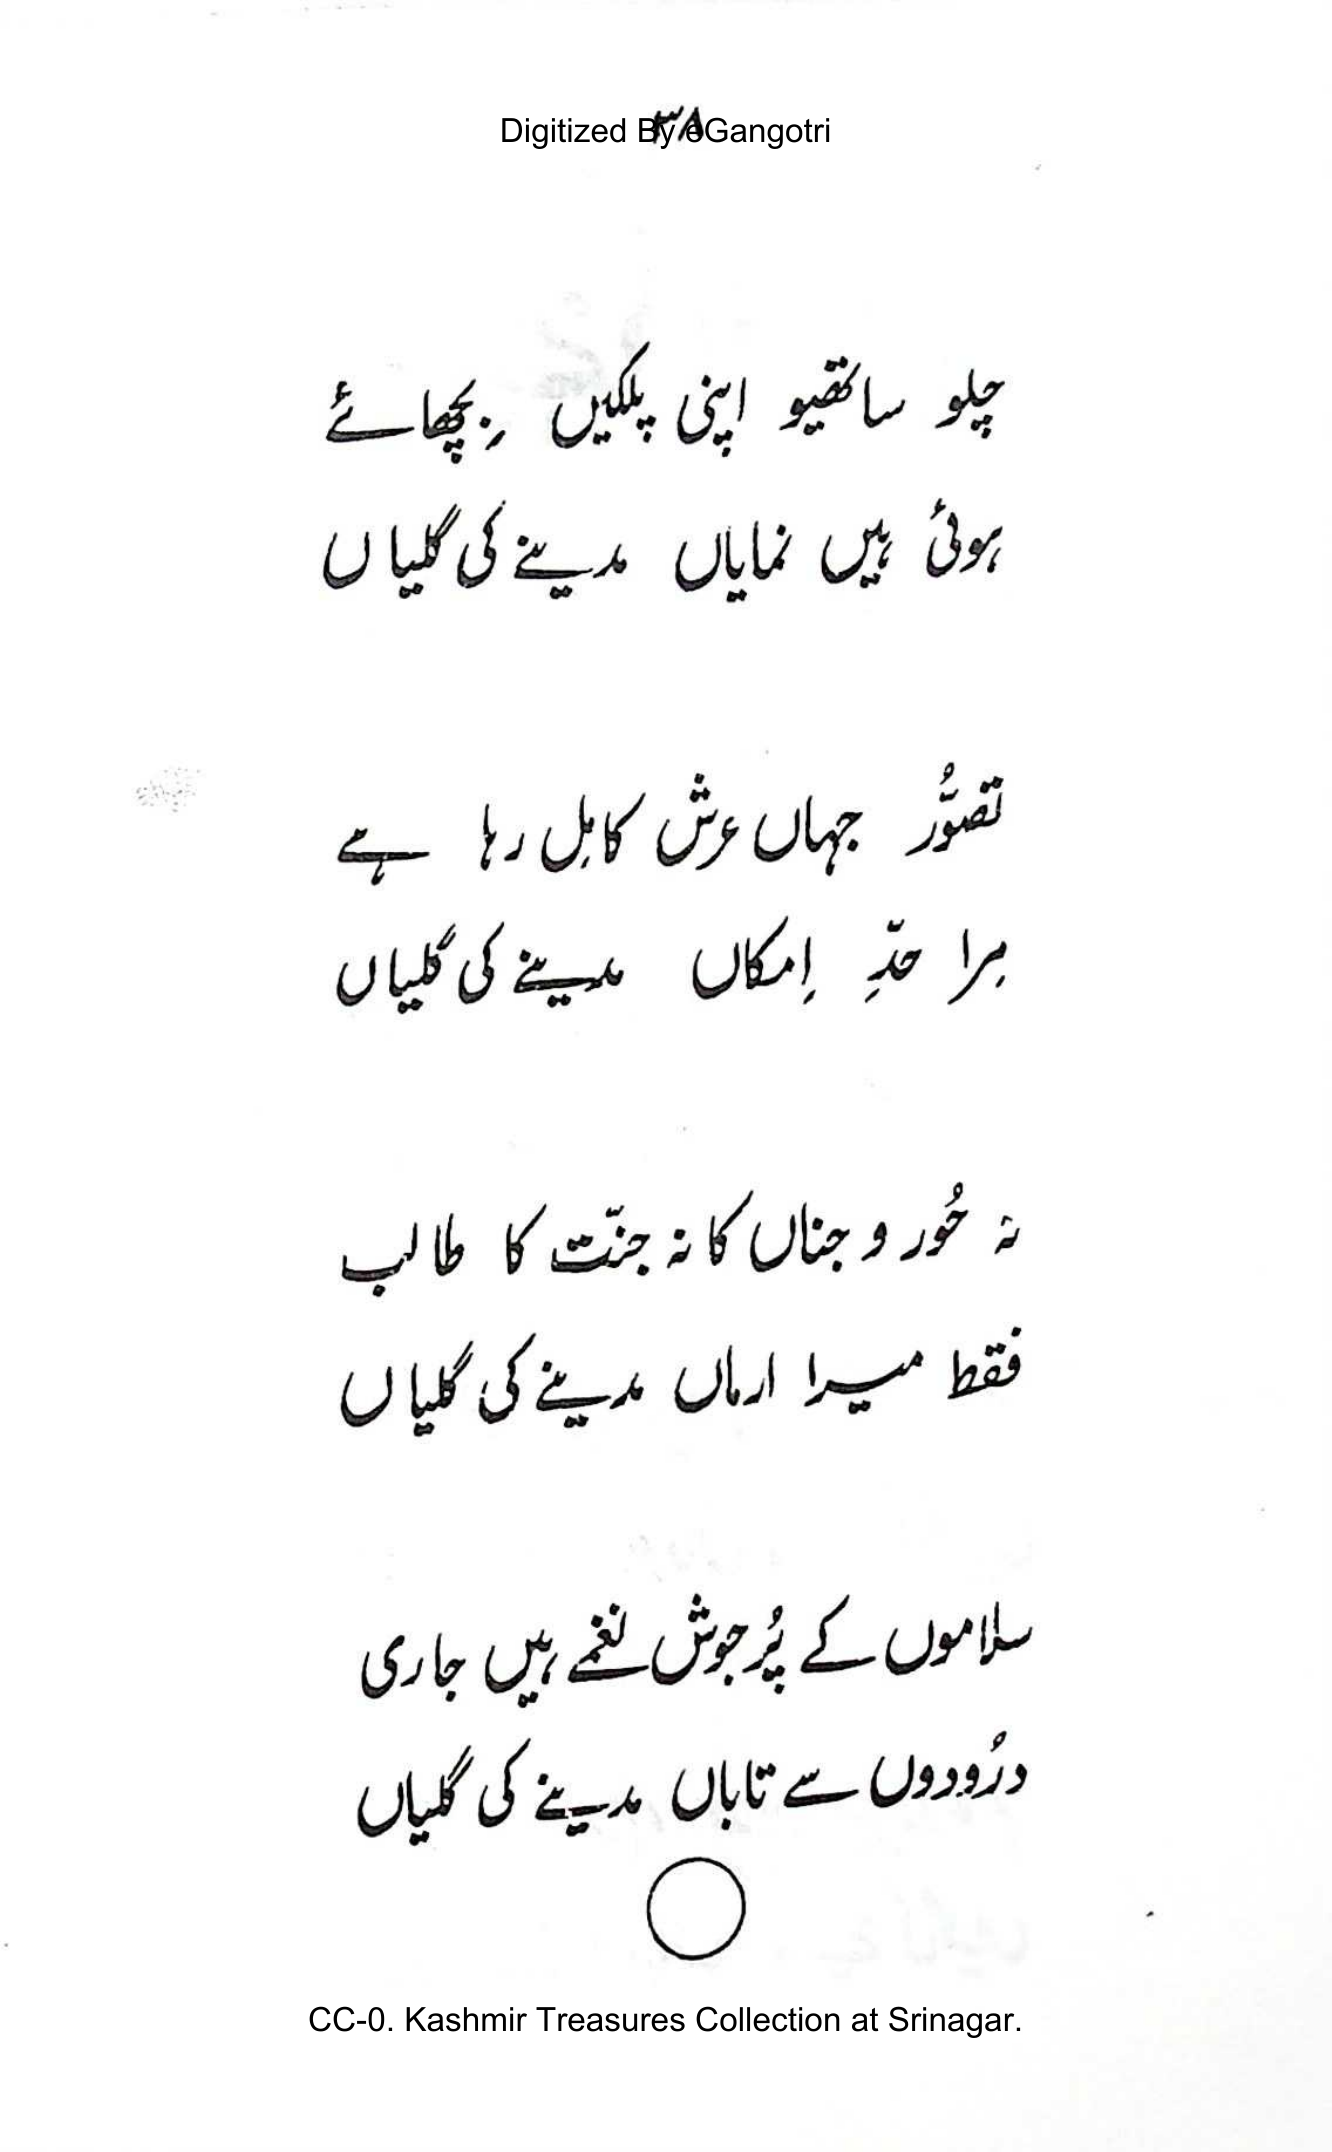 ۳۸
Digitized By eGangotri
چلو ساتھیو اپنی پلکیں بِچھائے
ہوئی ہیں نمایاں مدینے کی گلیاں
تصوُّر جہاں عرش کا مِل رہا ہے
مِرا حدِّ اِمکاں مدینے کی گلیاں
نہ حُور و جناں کا نہ جنّت کا طالب
فقط میرا ارماں مدینے کی گلیاں
سلاموں کے پُرجوش نغمے ہیں جاری
درُودوں سے تاباں مدینے کی گلیاں
CC-0. Kashmir Treasures Collection at Srinagar.